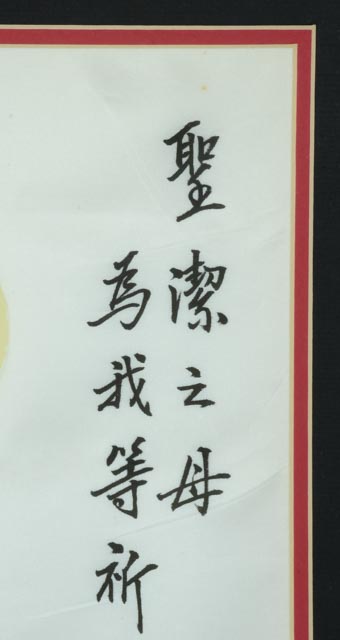 聖潔之母
為我等祈